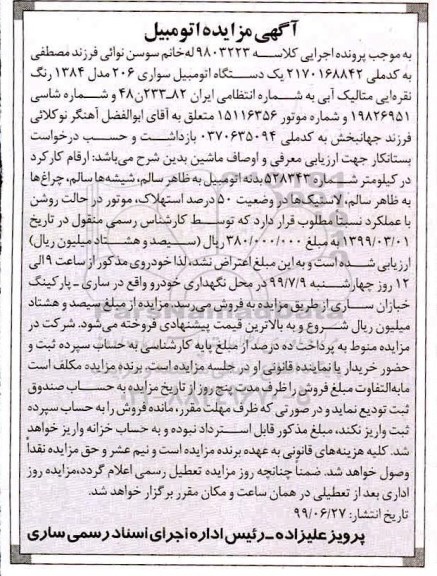 آگهی مزایده اتومبیل
به موجب پرونده اجرایی کلاسه ۹۸۰۳۲۲۳ له خانم سوسن نوائی فرزند مصطفی
به کدملی ۲۱۷۰۱۶۸۸۴۲ یک دستگاه اتومبیل سواری ۲۰۶ مدل ۱۳۸۴ رنگ
نقره‌ایی متالیک آبی به شماره انتظامی ایران ۸۲ـ۲۳۳ن۴۸ و شماره شاسی
۱۹۸۲۶۹۵۱ و شماره موتور ۱۵۱۱۶۳۵۶ متعلق به آقای ابوالفضل آهنگر نوکلائی
فرزند جهانبخش به کدملی ۰۳۷۰۶۳۵۰۹۴ بازداشت و حسب درخواست
بستانکار جهت ارزیابی معرفی و اوصاف ماشین بدین شرح می‌باشد: ارقام کارکرد
در کیلومتر شماره ۵۲۸۳۴۳ بدنه اتومبیل به ظاهر سالم، شیشه‌ها سالم، چراغ‌ها
به ظاهر سالم، لاستیک‌ها در وضعیت ۵۰ درصد استهلاک، موتور در حالت روشن
با عملکرد نسبتا مطلوب قرار دارد که توسط کارشناس رسمی منقول در تاریخ
۱۳۹۹/۰۳/۰۱ به مبلغ ۳۸۰/۰۰۰/۰۰۰ ریال (سیصد و هشتاد میلیون ریال)
ارزیابی شده است و به این مبلغ اعتراض نشد، لذا خودروی مذکور از ساعت ۹ الی
۱۲ روز چهارشنبه ۹۹/۷/۹ در محل نگهداری خودرو واقع در ساری ـ پارکینگ
خبازان ساری از طریق مزایده به فروش می‌رسد. مزایده از مبلغ سیصد و هشتاد
میلیون ریال شروع و به بالاترین قیمت پیشنهادی فروخته می‌شود. شرکت در
مزایده منوط به پرداخت ده درصد از مبلغ پایه کارشناسی به حساب سپرده ثبت و
حضور خریدار یا نماینده قانونی او در جلسه مزایده است. برنده مزایده مکلف است
مابه‌التفاوت مبلغ فروش را ظرف مدت پنج روز از تاریخ مزایده به حساب صندوق
ثبت تودیع نماید و در صورتی که ظرف مهلت مقرر، مانده فروش را به حساب سپرده
ثبت واریز نکند، مبلغ مذکور قابل استرداد نبوده و به حساب خزانه واریز خواهد
شد. کلیه هزینه‌های قانونی به عهده برنده مزایده است و نیم عشر و حق مزایده نقداً
وصول خواهد شد. ضمناً چنانچه روز مزایده تعطیل رسمی اعلام گردد، مزایده روز
اداری بعد از تعطیلی در همان ساعت و مکان مقرر برگزار خواهد شد.
تاریخ انتشار: ۹۹/۰۶/۲۷
پرویز علیزاده ـ رئیس اداره اجرای اسناد رسمی ساری